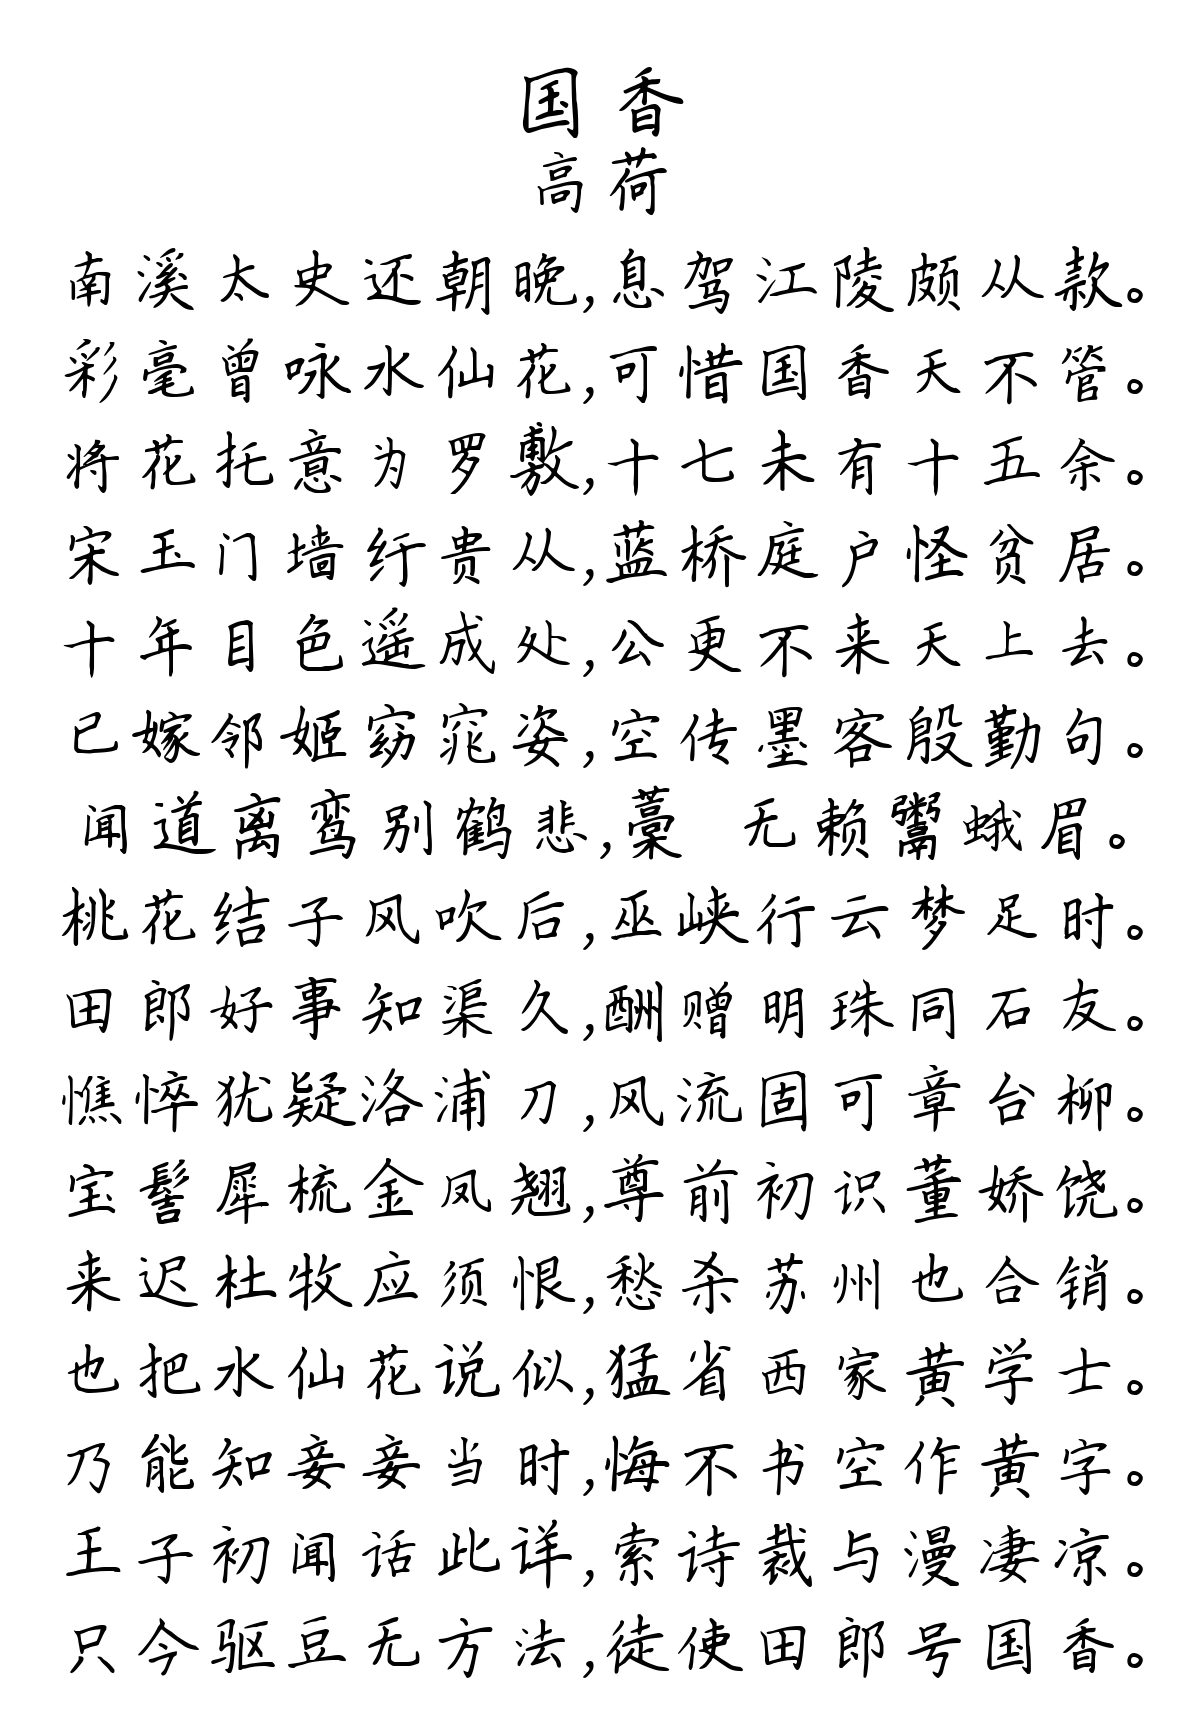 国香
高荷
南溪太史还朝晚,息驾江陵颇从款。
彩毫曾咏水仙花,可惜国香天不管。
将花托意为罗敷,十七未有十五余。
宋玉门墙纡贵从,蓝桥庭户怪贫居。
十年目色遥成处,公更不来天上去。
已嫁邻姬窈窕姿,空传墨客殷勤句。
闻道离鸾别鹤悲,藁 无赖鬻蛾眉。
桃花结子风吹后,巫峡行云梦足时。
田郎好事知渠久,酬赠明珠同石友。
憔悴犹疑洛浦刀,风流固可章台柳。
宝髻犀梳金凤翘,尊前初识董娇饶。
来迟杜牧应须恨,愁杀苏州也合销。
也把水仙花说似,猛省西家黄学士。
乃能知妾妾当时,悔不书空作黄字。
王子初闻话此详,索诗裁与漫凄凉。
只今驱豆无方法,徒使田郎号国香。